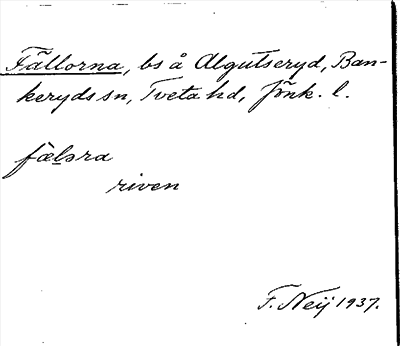 Fällorna, bs å Algutseryd, Ban-
keryds sn, Tveta hd, Jönk. l.
fælsra
riven
F. Neij 1937.